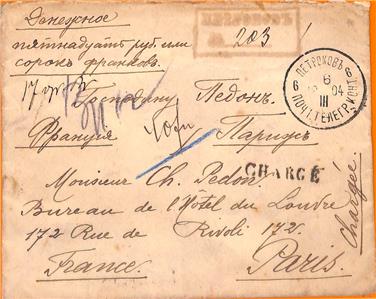 Денежное
203
пятнадцать руб. или
сорок франковъ.
Господину Педонъ.
Франція Парижъ
ПЕТРОКОВЪ
6 6
III
CHARGÉ
Monsieur Ch. Pedon.
Bureau de l'Hôtel du Louvre
172 Rue de Rivoli 172.
France. Paris.
Chargée.